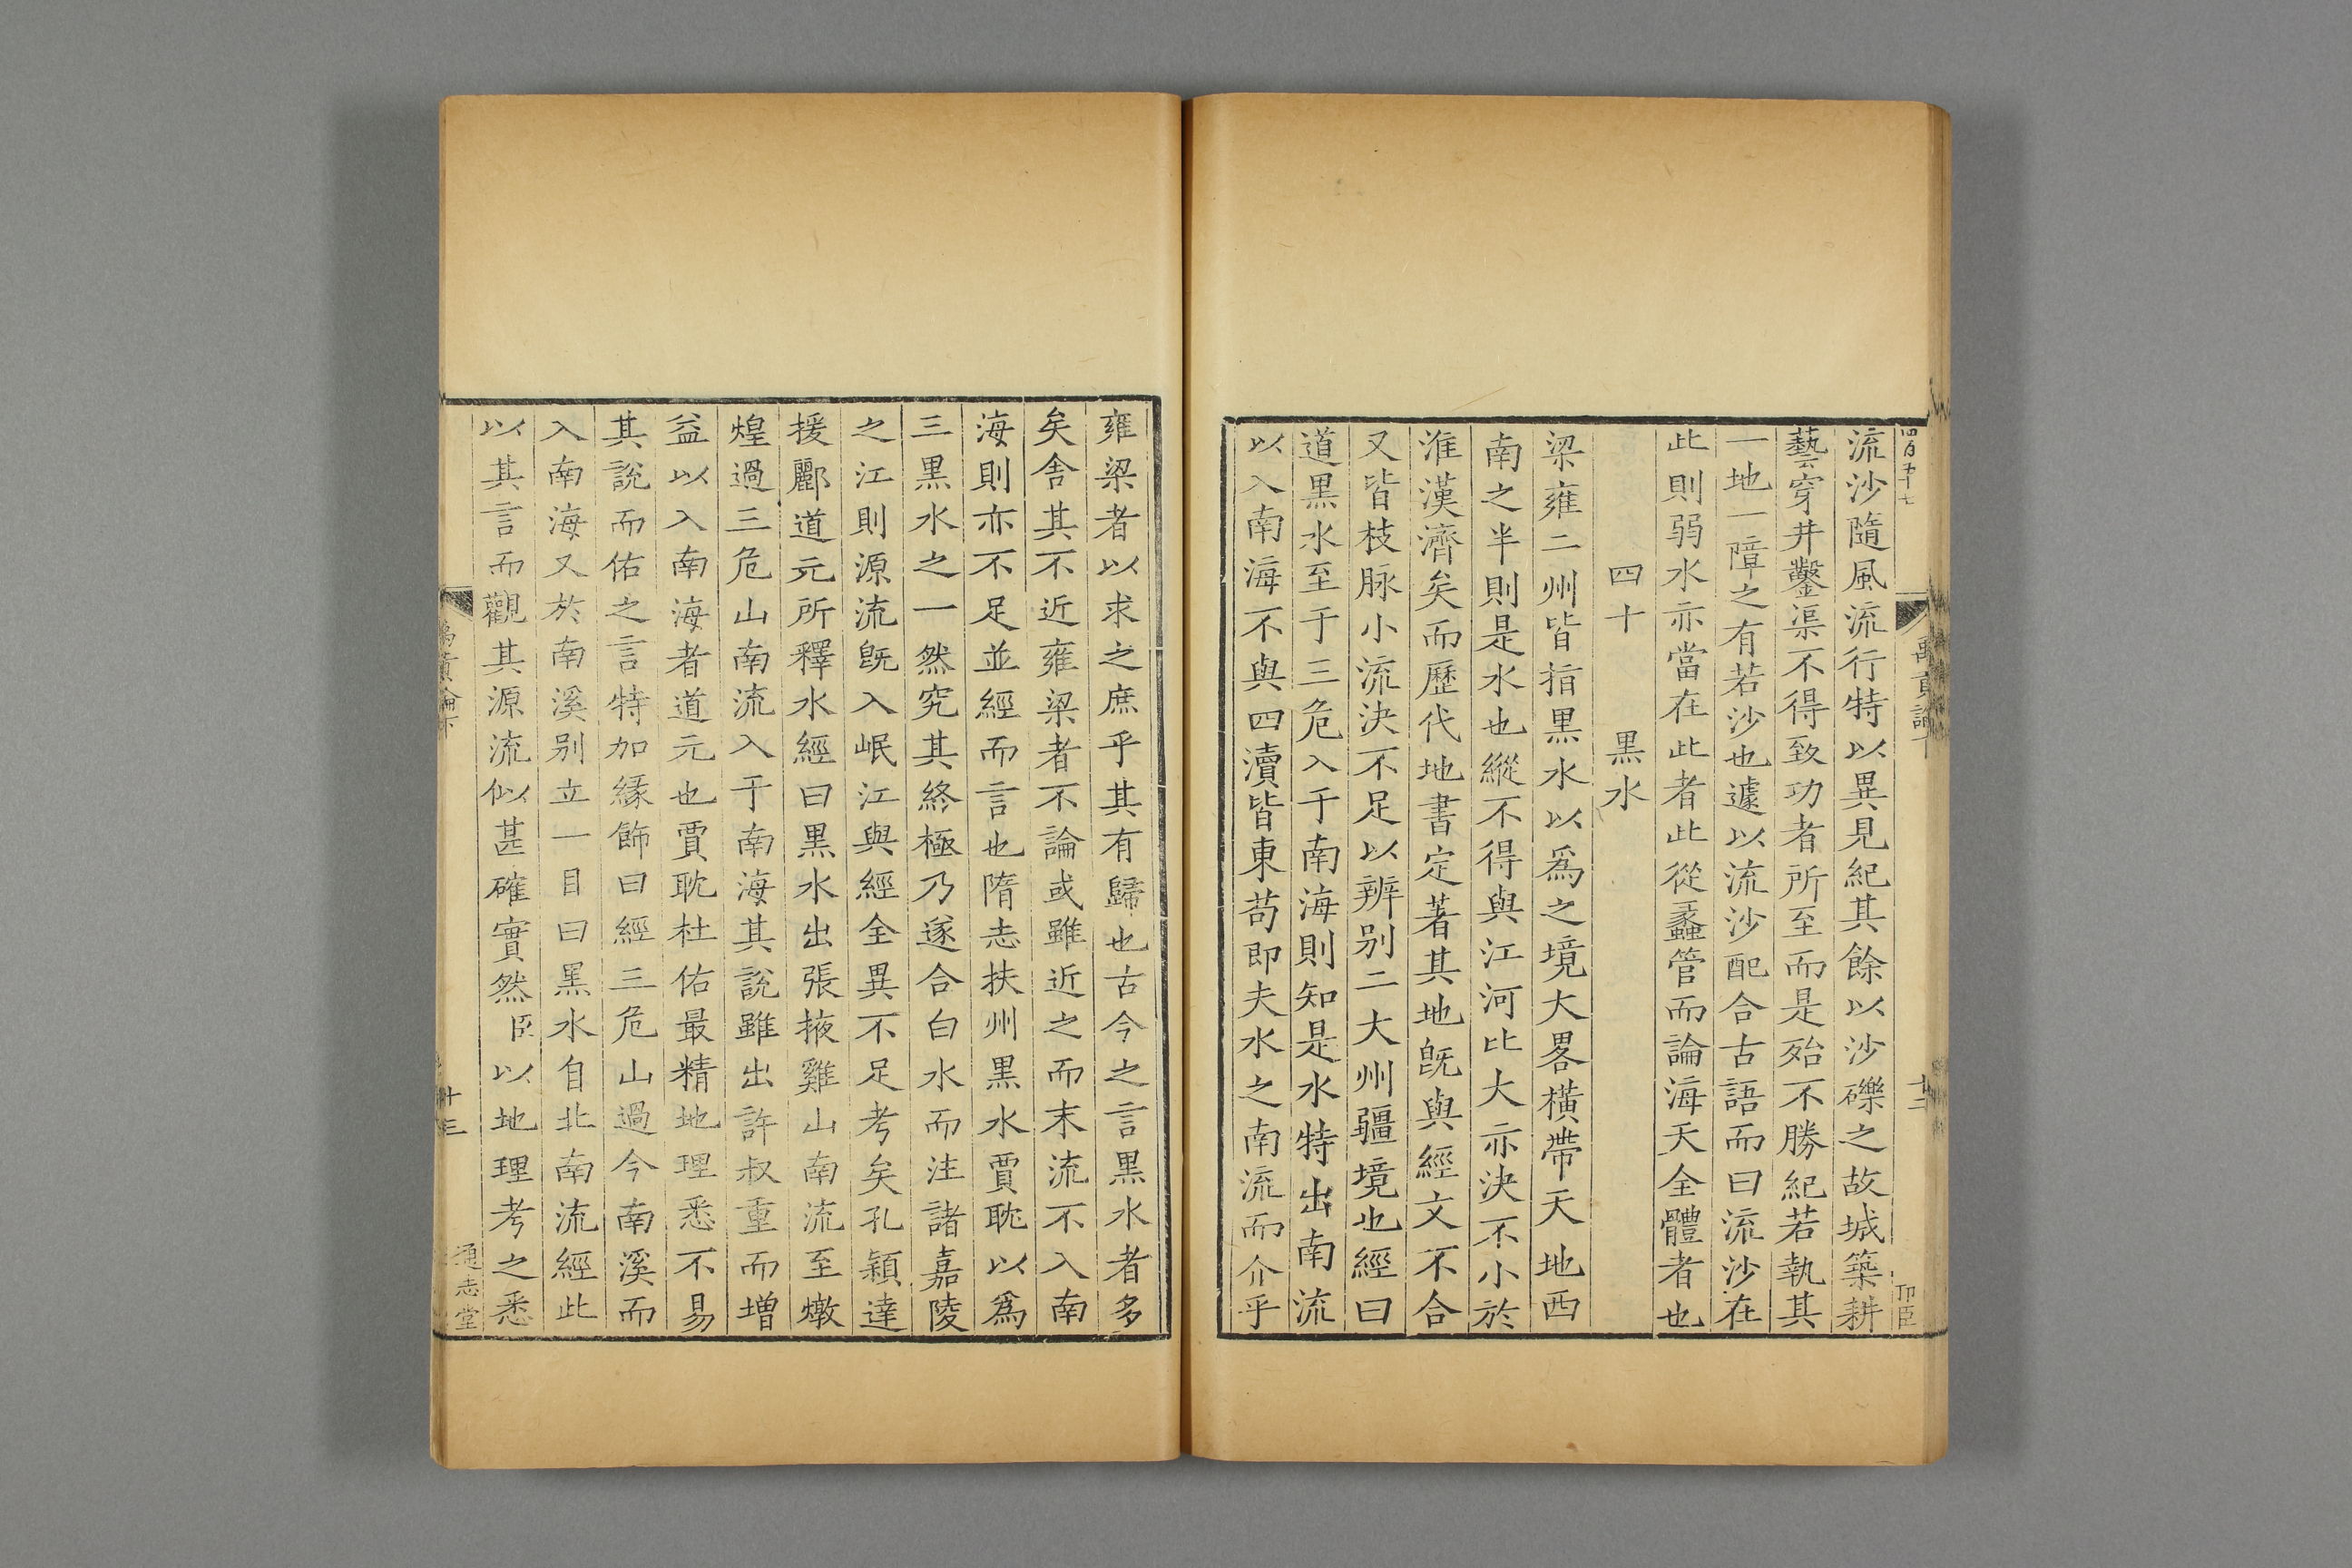 流沙隨風流行特以異見紀其餘以沙礫之故城築耕
藝穿井鑿渠不得致功者所至而是殆不勝紀若執其
一地一障之有若沙也遽以流沙配合古語而曰流沙在
此則弱水亦當在此者此從蠡管而論海天全體者也
四十 黑水
梁雍二州皆指黑水以爲之境大畧橫帶天地西
南之半則是水也縱不得與江河比大亦決不小於
淮漢濟矣而歷代地書定著其地旣與經文不合
又皆枝脉小流決不足以辨别二大州疆境也經曰
道黑水至于三危入于南海則知是水特出南流
以入南海不與四瀆皆東苟即夫水之南流而介乎
雍梁者以求之庶乎其有歸也古今之言黑水者多
矣舍其不近雍梁者不論或雖近之而末流不入南
海則亦不足並經而言也隋志扶州黑水賈耽以爲
三黑水之一然究其終極乃遂合白水而注諸嘉陵
之江則源流旣入岷江與經全異不足考矣孔穎達
援酈道元所釋水經曰黑水出張掖雞山南流至燉
煌過三危山南流入于南海其說雖出許叔重而增
益以入南海者道元也賈耽杜佑最精地理悉不易
其說而佑之言特加緣飾曰經三危山過今南溪而
入南海又於南溪别立一目曰黑水自北南流經此
以其言而觀其源流似甚確實然臣以地理考之悉
禹貢論下
十三
通志堂